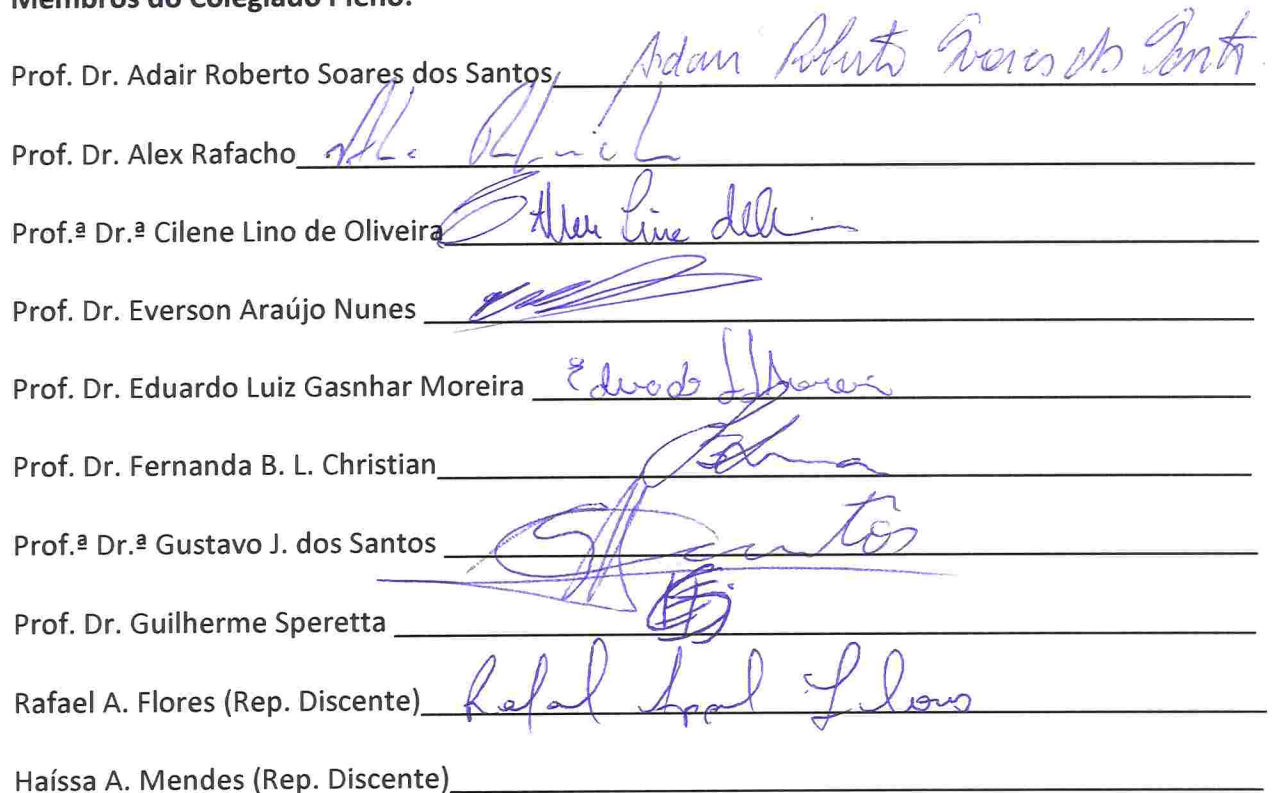 Membros do Colegiado Pleno:
Prof. Dr. Adair Roberto Soares dos Santos, Adair Roberto Soares dos Santos
Prof. Dr. Alex Rafacho
Prof.ª Dr.ª Cilene Lino de Oliveira
Prof. Dr. Everson Araújo Nunes
Prof. Dr. Eduardo Luiz Gasnhar Moreira Eduardo
Prof. Dr. Fernanda B. L. Christian
Prof.ª Dr.ª Gustavo J. dos Santos
Prof. Dr. Guilherme Speretta
Rafael A. Flores (Rep. Discente) Rafael Appel Flores
Haíssa A. Mendes (Rep. Discente)